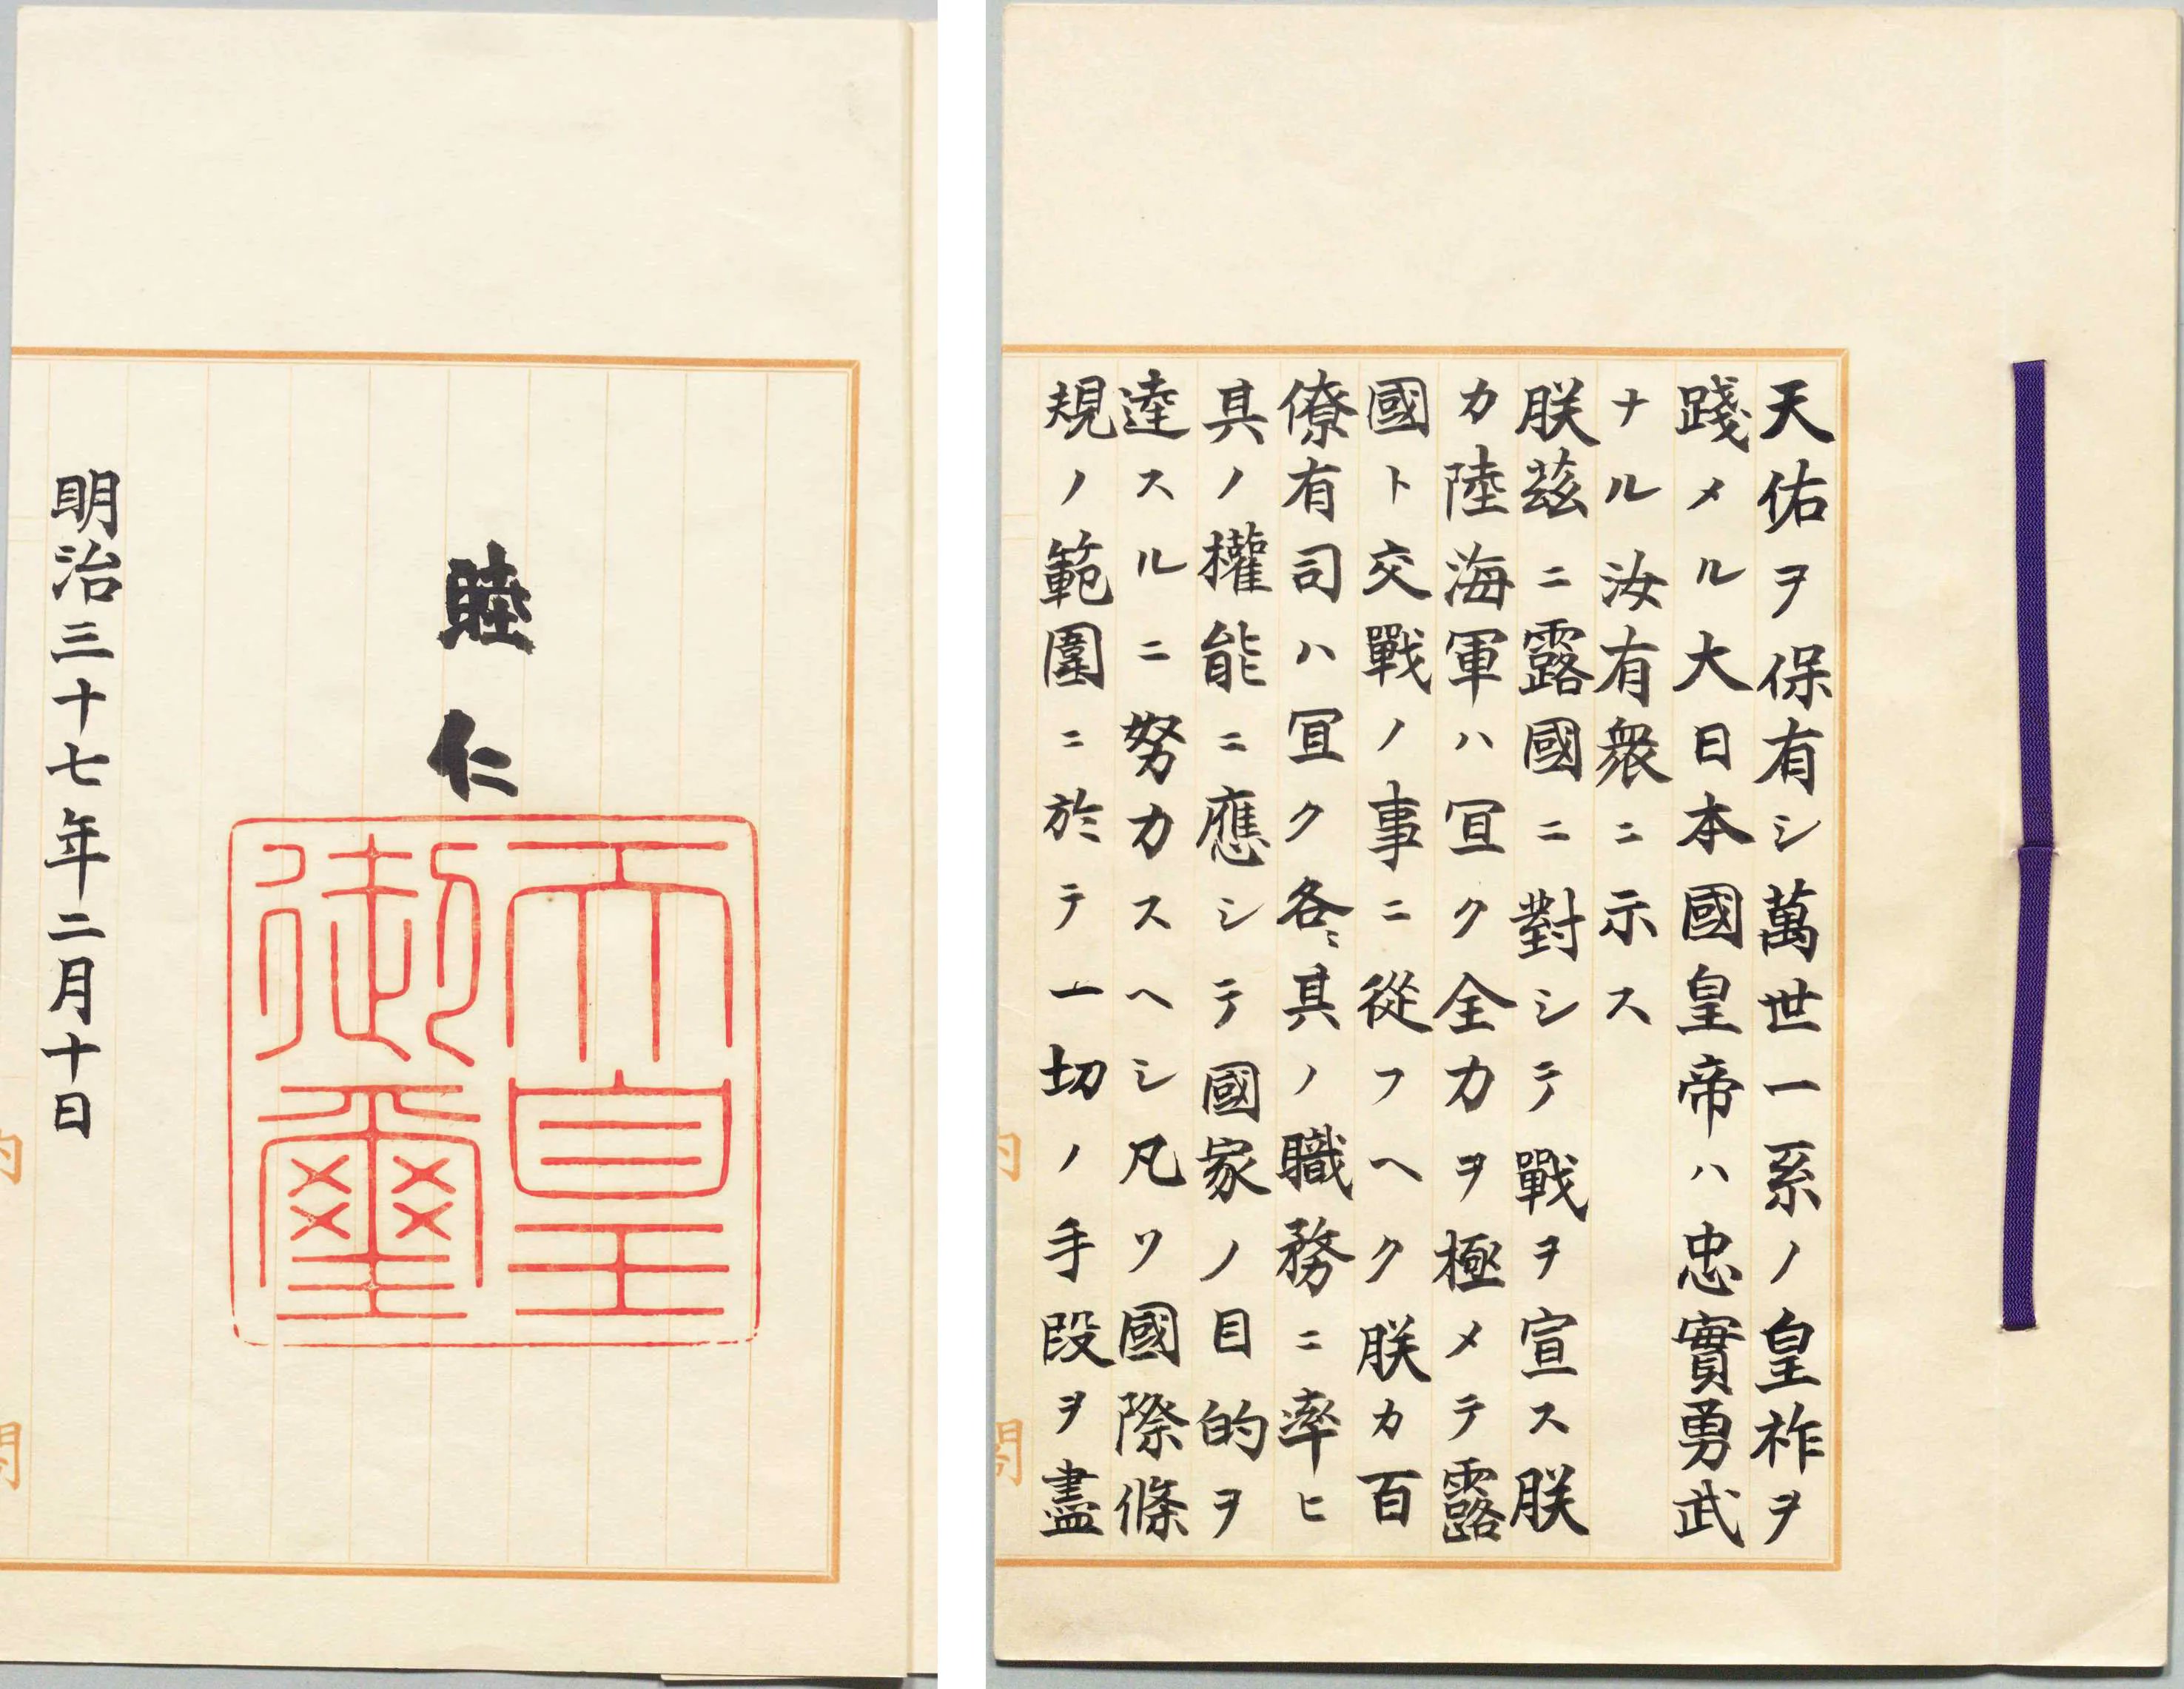 天佑ヲ保有シ萬世一系ノ皇祚ヲ
踐メル大日本國皇帝ハ忠實勇武
ナル汝有衆ニ示ス
朕茲ニ露國ニ對シテ戰ヲ宣ス朕
カ陸海軍ハ宜ク全力ヲ極メテ露
國ト交戰ノ事ニ從フヘク朕カ百
僚有司ハ宜ク各〻其ノ職務ニ率ヒ
其ノ權能ニ應シテ國家ノ目的ヲ
達スルニ努力スヘシ凡ソ國際條
規ノ範圍ニ於テ一切ノ手段ヲ盡
睦仁
天皇
御璽
明治三十七年二月十日